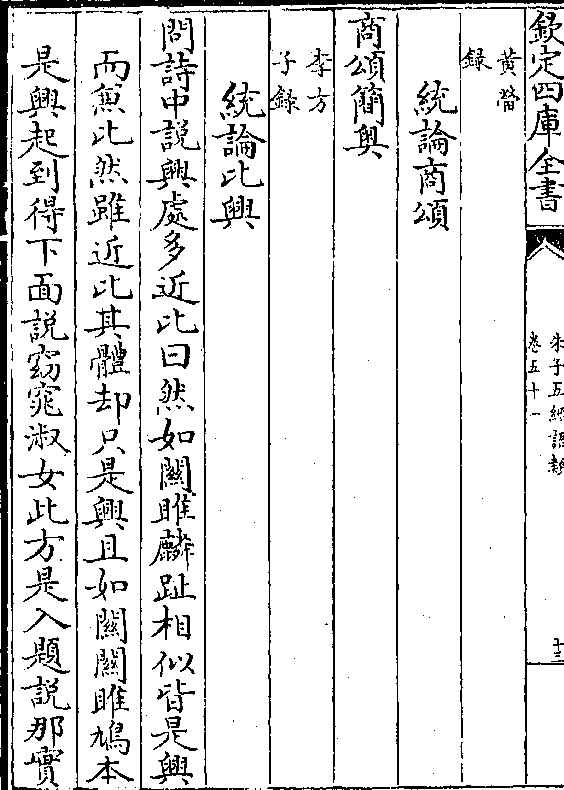 欽定四庫全書
朱子五經語類
卷五十一
十三
黃㽦
録
統論商頌
商頌簡奥
李方
子録
統論比興
問詩中説興處多近比曰然如關雎麟趾相似皆是興
而兼比然雖近比其體却只是興且如關關雎鳩本
是興起到得下面説窈窕淑女此方是入題説那實